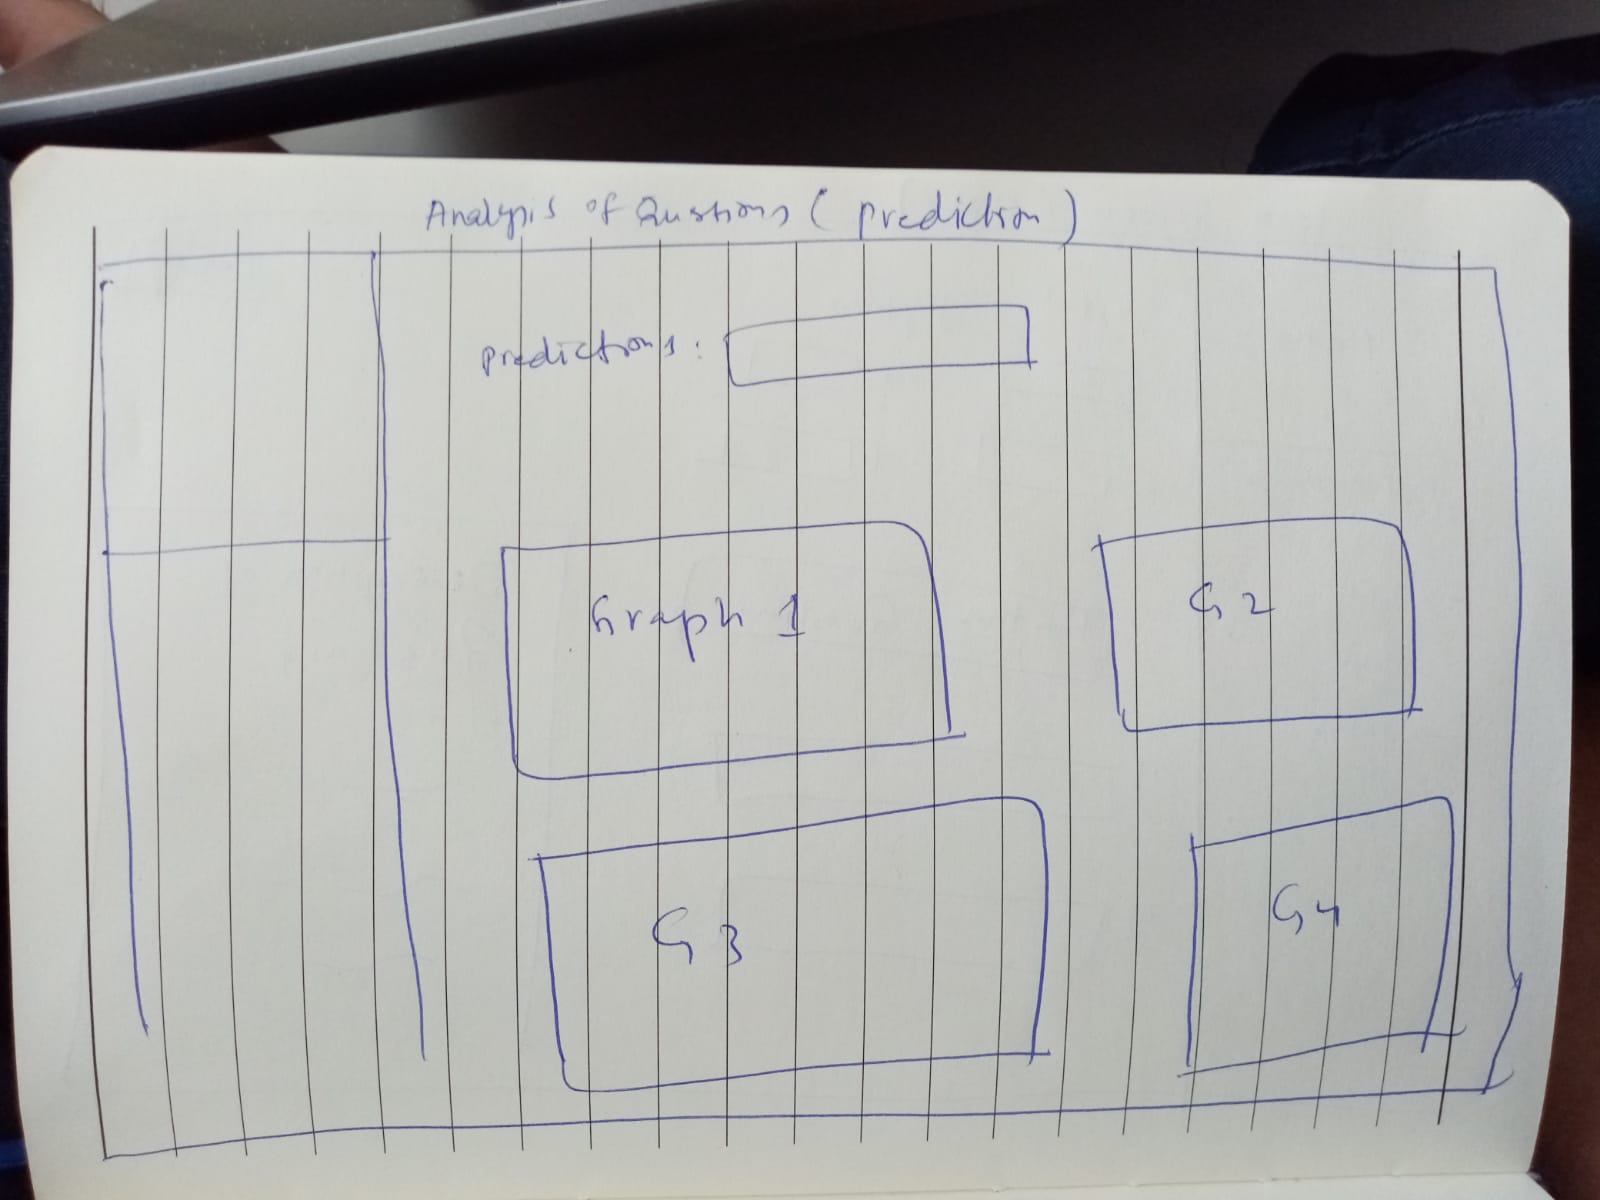 Analysis of Qustions (prediction)
predictions:
Graph 1
G2
G3
G4